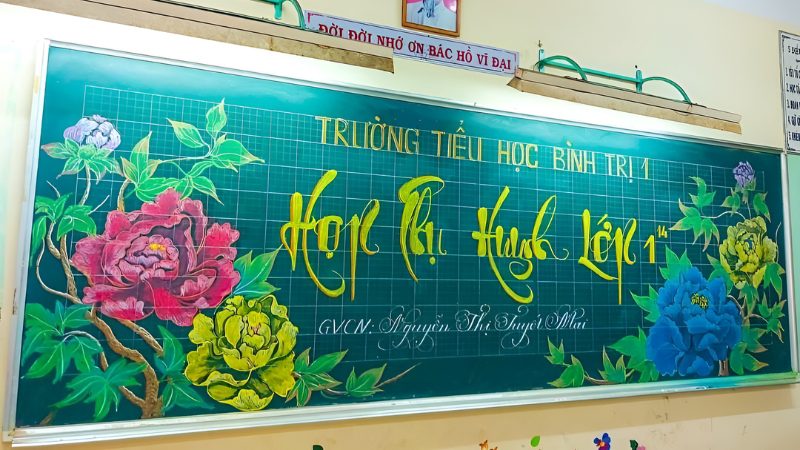 ĐỜI ĐỜI NHỚ ƠN BÁC HỒ VĨ ĐẠI
TRƯỜNG TIỂU HỌC BÌNH TRỊ 1
Họp Phụ Huynh Lớp 1¹⁴
GVCN: Nguyễn Thị Tuyết Mai
5 ĐIỀU